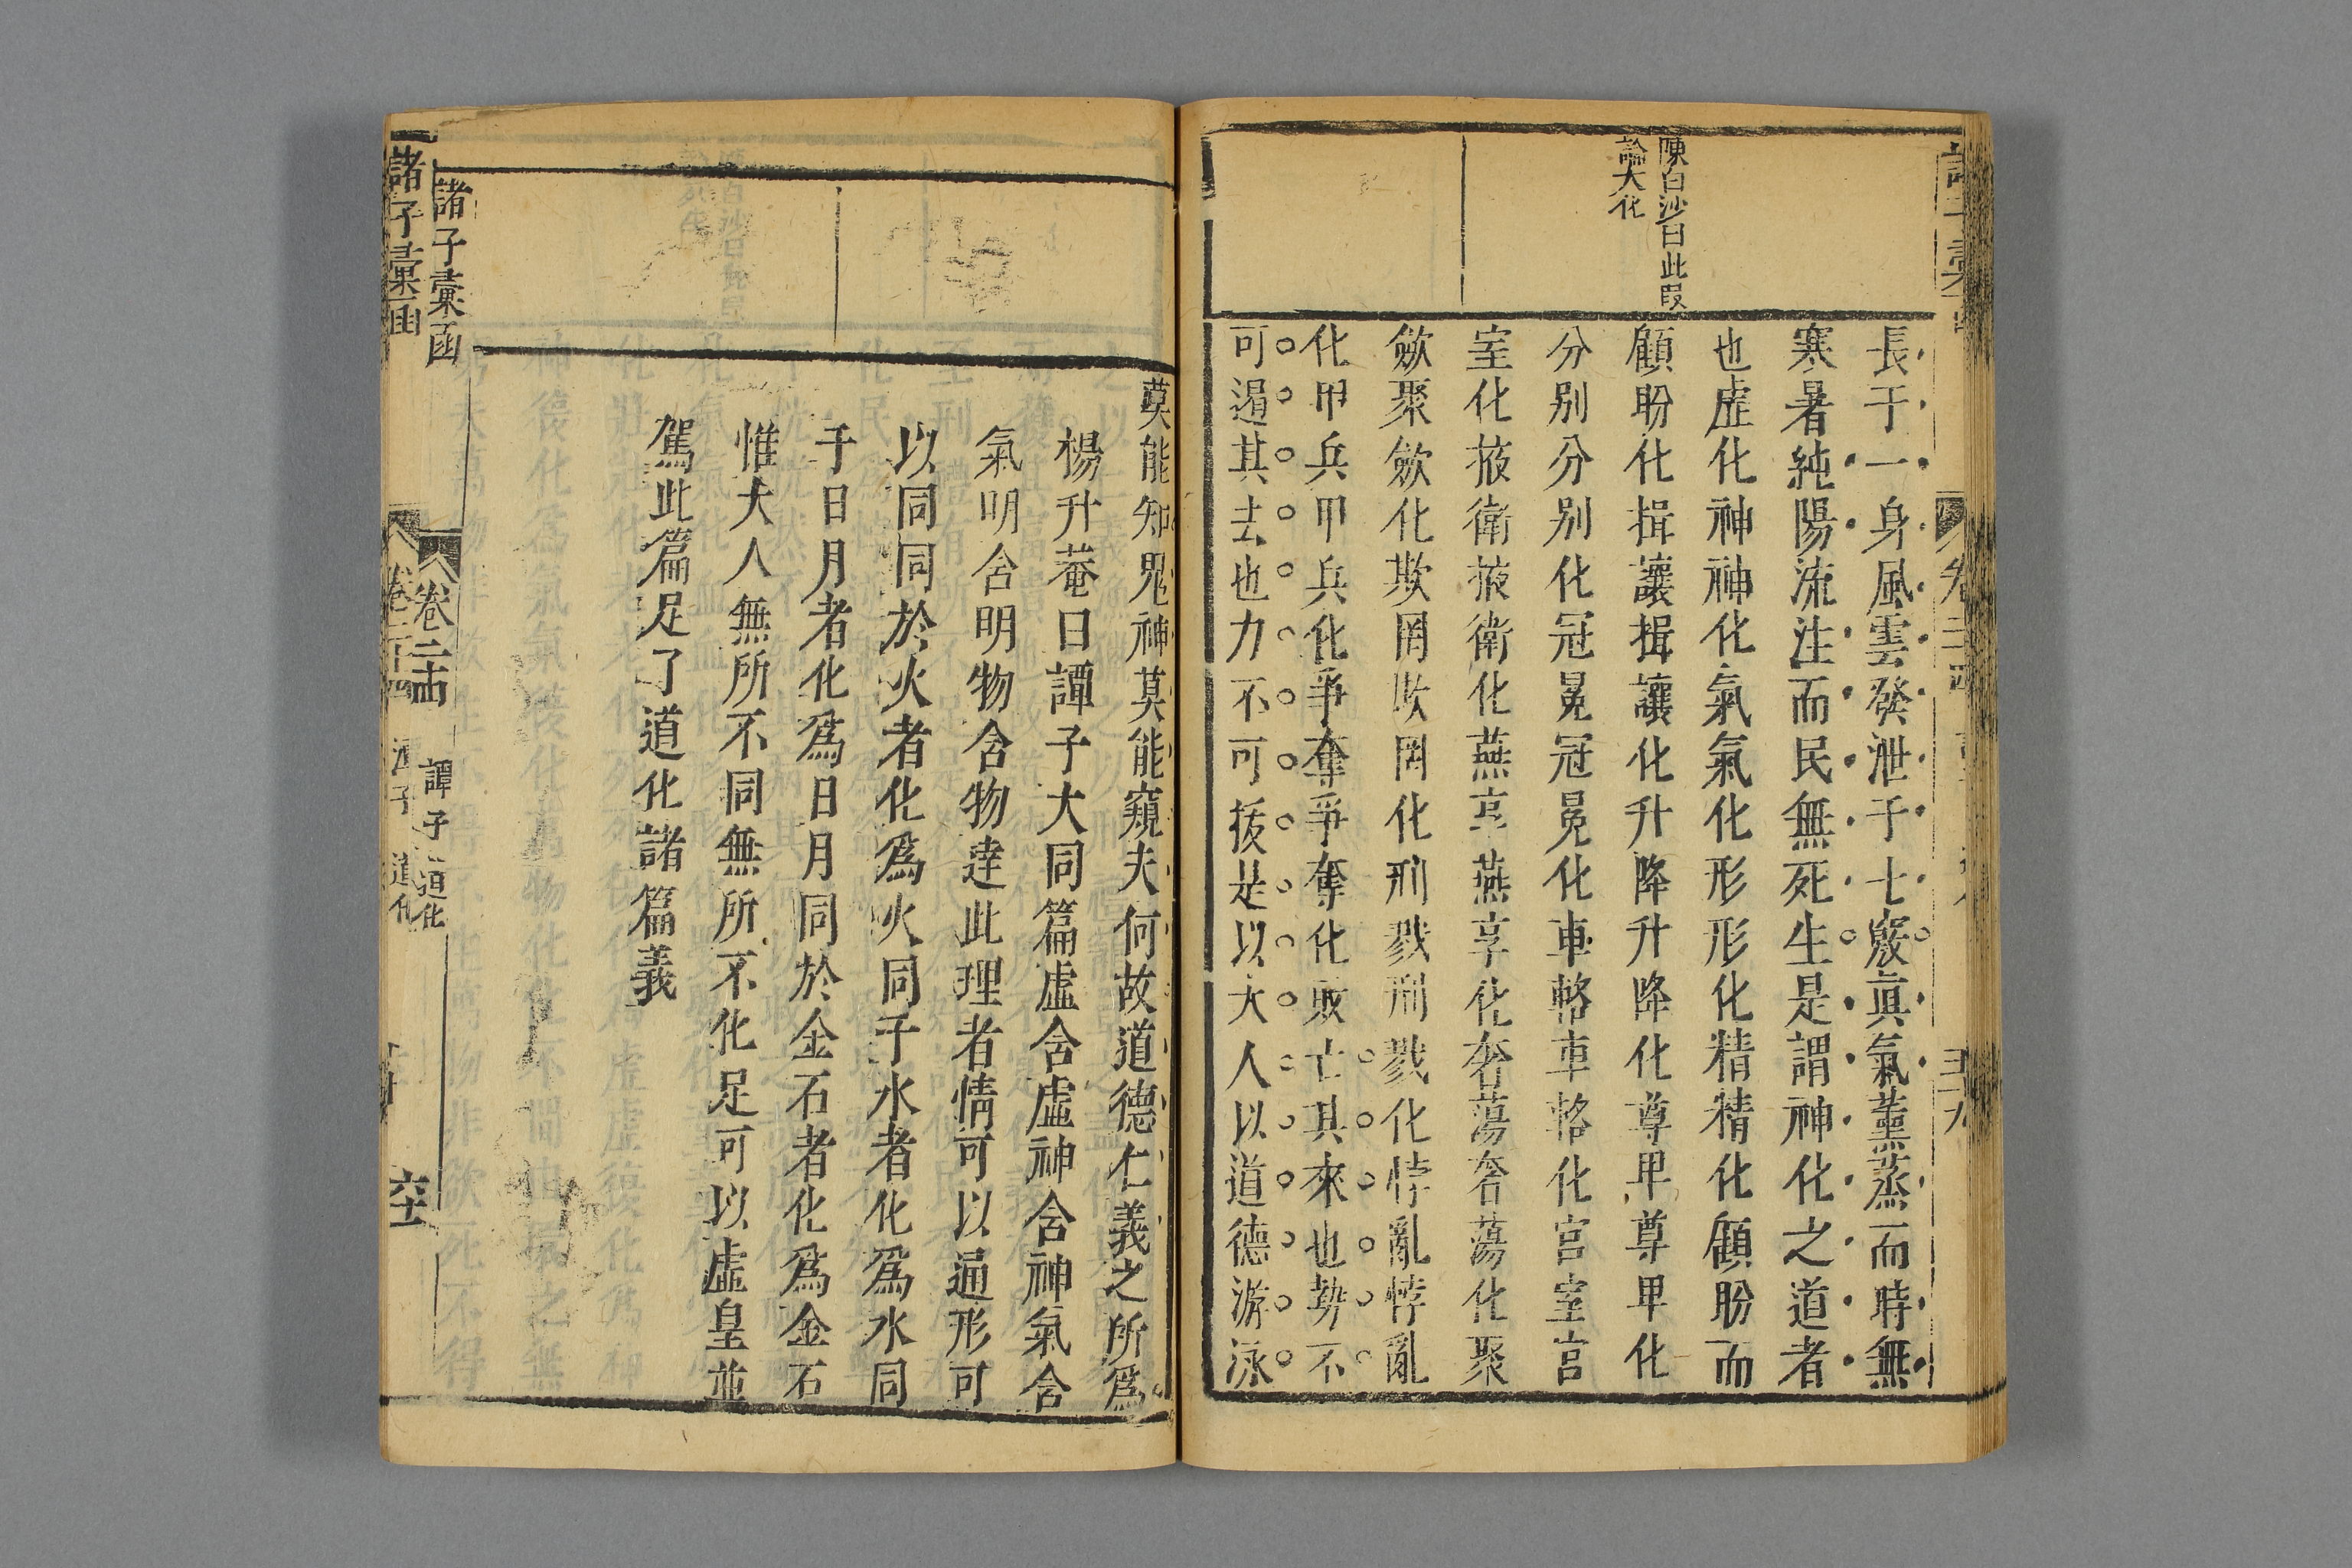 陳白沙曰此叚
論大化
長于一身風雲發泄于七竅眞氣薰蒸而時無
寒暑純陽流注而民無死生是謂神化之道者
也虛化神神化氣氣化形形化精精化顧盼而
顧盼化揖讓揖讓化升降升降化尊卑尊卑化
分別分別化冠冕冠冕化車輅車輅化宮室宮
室化掖衛掖衛化燕享燕享化奢蕩奢蕩化聚
歛聚歛化欺罔欺罔化刑戮刑戮化悖亂悖亂
化甲兵甲兵化爭奪爭奪化敗亡其來也勢不
可遏其去也力不可拔是以大人以道德游泳
莫能知鬼神莫能窺夫何故道德仁義之所爲
楊升菴曰譚子大同篇虛含虛神含神氣含
氣明含明物含物達此理者情可以通形可
以同同於火者化爲火同于水者化爲水同
于日月者化爲日月同於金石者化爲金石
惟大人無所不同無所不化足可以虛皇並
駕此篇足了道化諸篇義
諸子彙函
卷二十四
譚子
道化
諸子彙函